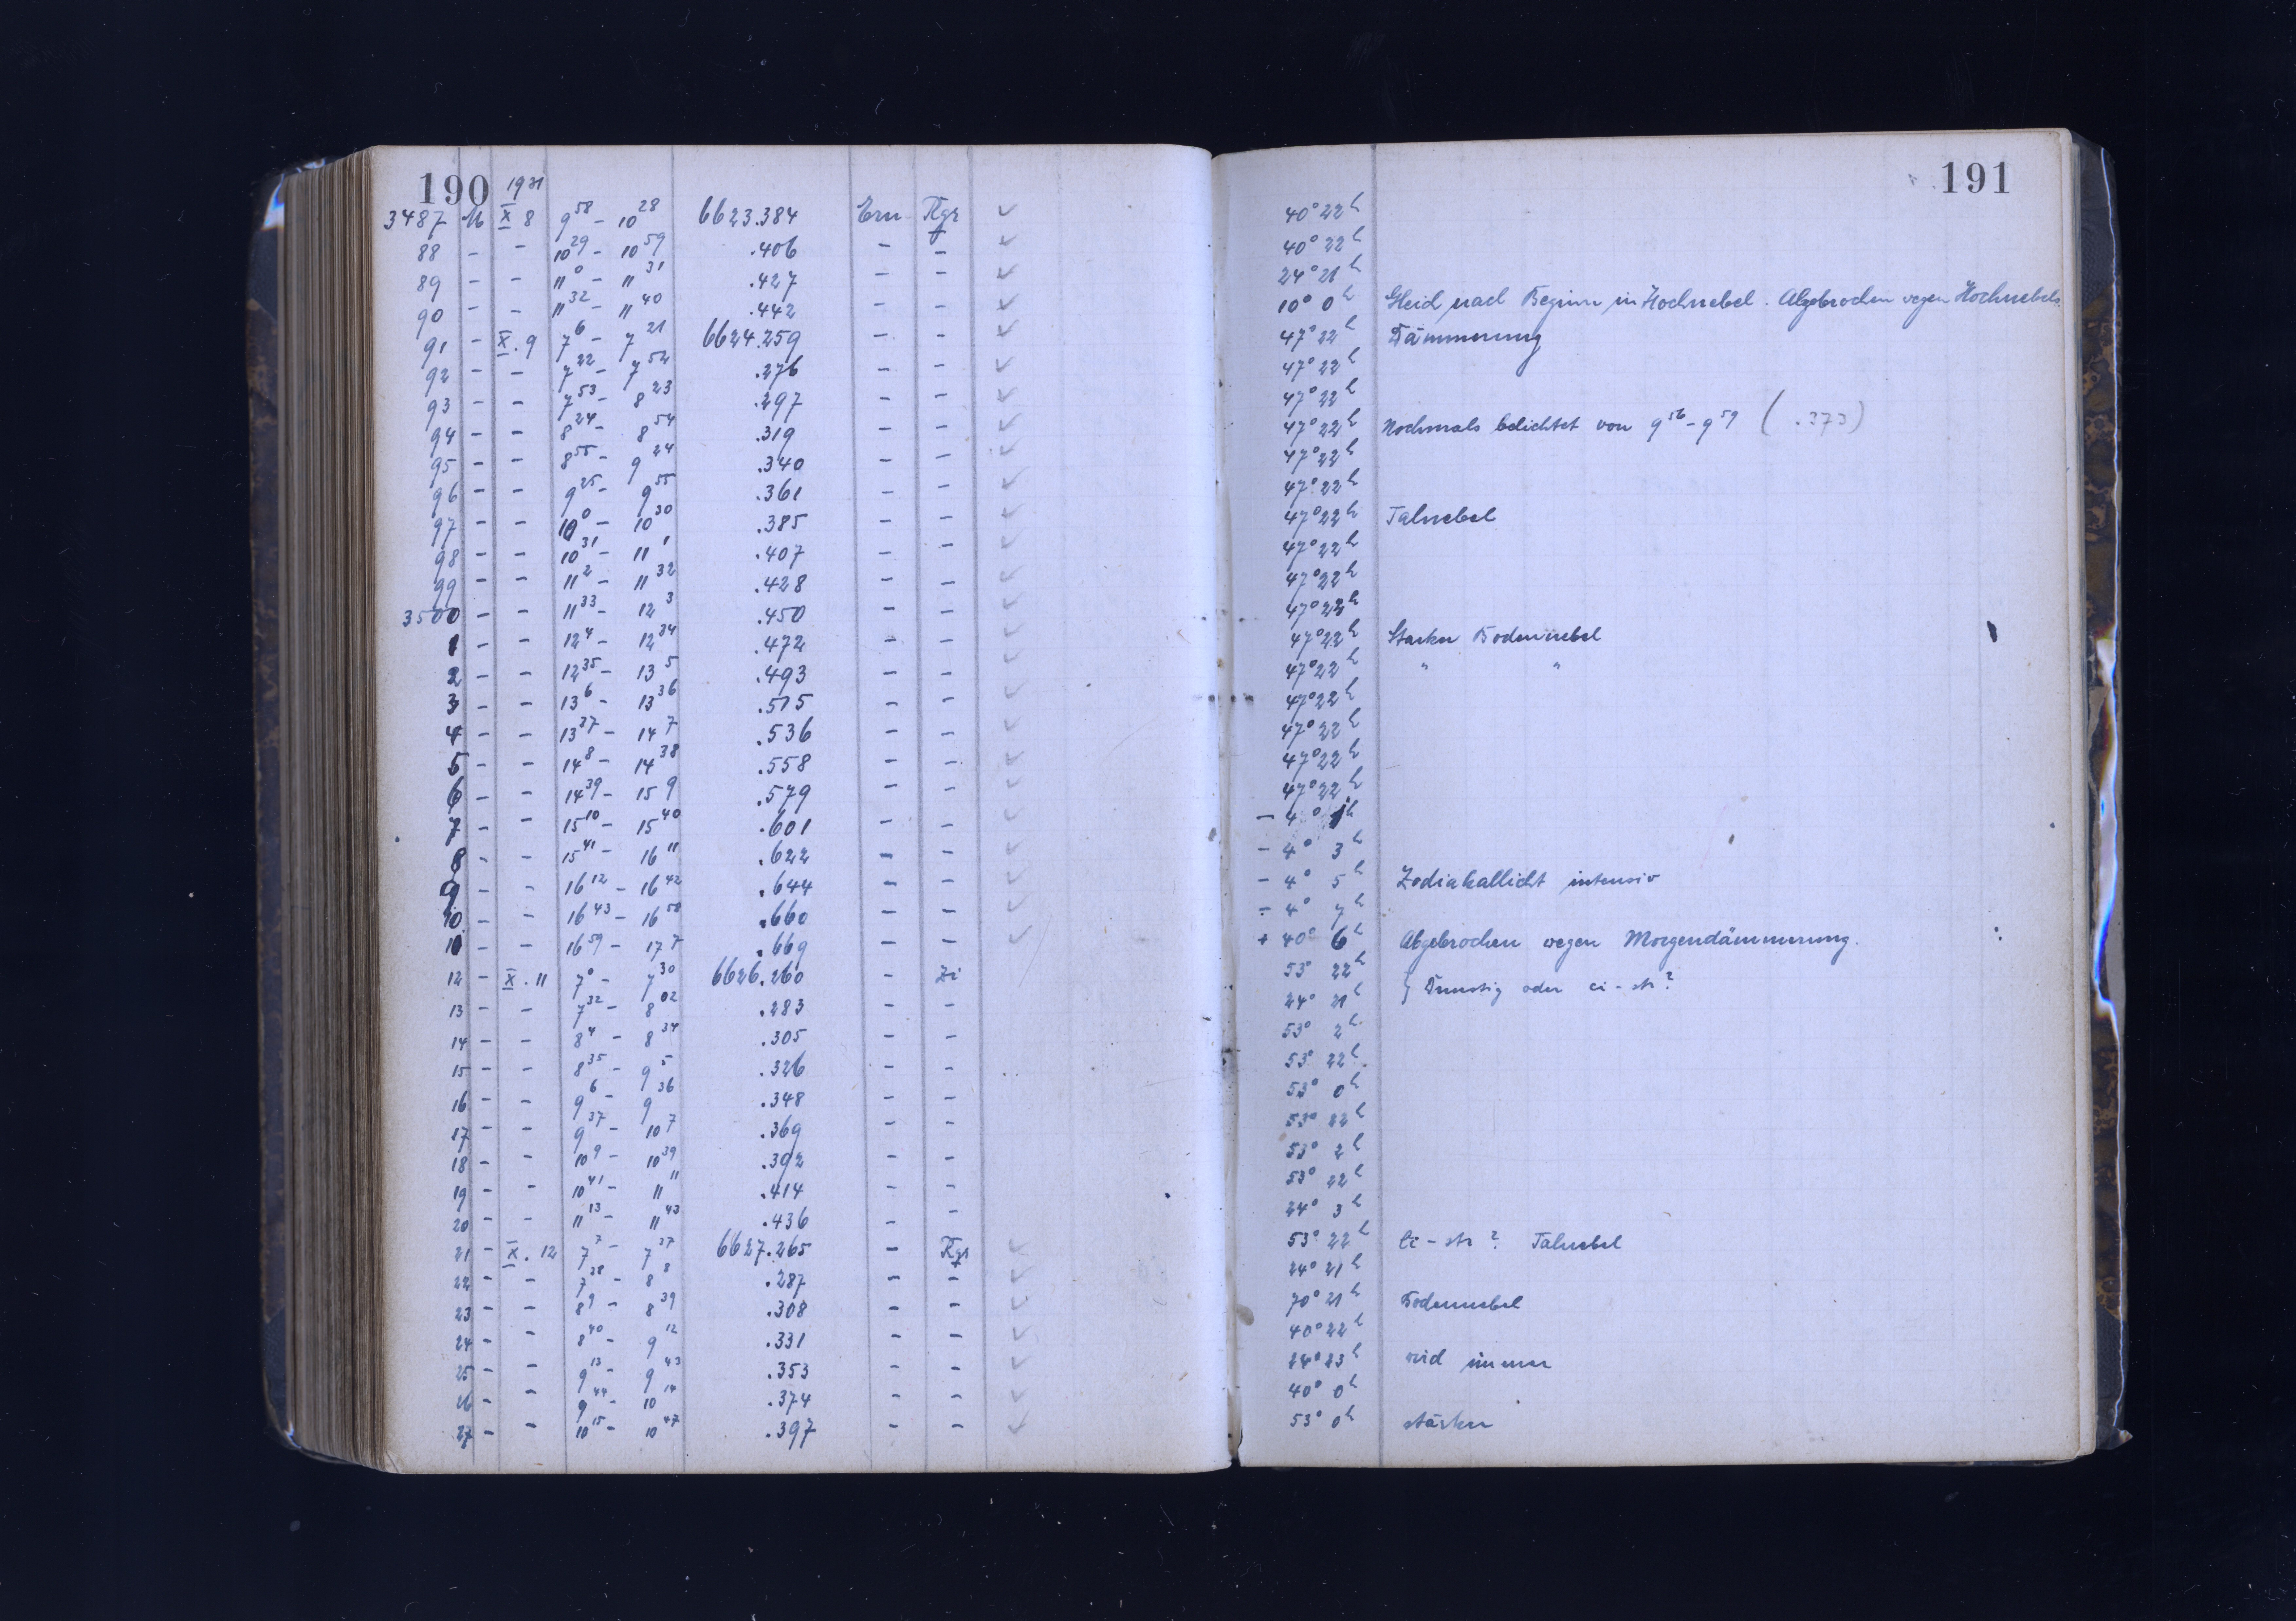 190 1931
3487 M X 8 9 58 – 10 28 6623.384 Ern Rgr 40° 22h
88 – – 10 29 – 10 59 .406 – – 40° 22h
89 – – 11 0 – 11 31 .427 – – 24° 21h
90 – – 11 32 – 11 40 .442 – – 10° 0h Gleich nach Beginn in Hochnebel. Abgebrochen wegen Hochnebels.
91 – X. 9 7 6 – 7 21 6624.259 – – 47° 22h Dämmerung
92 – – 7 22 – 7 52 .276 – – 47° 22h
93 – – 7 53 – 8 23 .297 – – 47° 22h
94 – – 8 24 – 8 54 .319 – – 47° 22h Nochmals belichtet von 9 56 – 9 59 ( .373)
95 – – 8 55 – 9 24 .340 – – 47° 22h
96 – – 9 25 – 9 55 .361 – – 47° 22h
97 – – 10 0 – 10 30 .385 – – 47° 22h Talnebel
98 – – 10 31 – 11 1 .407 – – 47° 22h
99 – – 11 2 – 11 32 .428 – – 47° 22h
3500 – – 11 33 – 12 3 .450 – – 47° 22h
1 – – 12 4 – 12 34 .472 – – 47° 22h Starker Bodennebel
2 – – 12 35 – 13 5 .493 – – 47° 22h " "
3 – – 13 6 – 13 36 .515 – – 47° 22h
4 – – 13 37 – 14 7 .536 – – 47° 22h
5 – – 14 8 – 14 38 .558 – – 47° 22h
6 – – 14 39 – 15 9 .579 – – 47° 22h
7 – – 15 10 – 15 40 .601 – – – 4° 1h
8 – – 15 41 – 16 11 .622 – – – 4° 3h
9 – – 16 12 – 16 42 .644 – – – 4° 5h Zodiakallicht intensiv
10 – – 16 43 – 16 58 .660 – – – 4° 7h
11 – – 16 59 – 17 7 .669 – – + 40° 6h Abgebrochen wegen Morgendämmerung.
12 – X. 11 7 0 – 7 30 6626.260 – Zi 53° 22h
13 – – 7 32 – 8 02 .283 – – 24° 21h } Dunstig oder ci-str?
14 – – 8 4 – 8 34 .305 – – 53° 2h
15 – – 8 35 – 9 5 .326 – – 53° 22h
16 – – 9 6 – 9 36 .348 – – 53° 0h
17 – – 9 37 – 10 7 .369 – – 53° 22h
18 – – 10 9 – 10 39 .392 – – 53° 2h
19 – – 10 41 – 11 11 .414 – – 53° 22h
20 – – 11 13 – 11 43 .436 – – 24° 3h
21 – X. 12 7 7 – 7 37 6627.265 – Rgr 53° 22h Ci-str? Talnebel
22 – – 7 38 – 8 8 .287 – – 24° 21h
23 – – 8 9 – 8 39 .308 – – 70° 21h Bodennebel
24 – – 8 40 – 9 12 .331 – – 40° 22h
25 – – 9 13 – 9 43 .353 – – 24° 23h wird immer
26 – – 9 44 – 10 14 .374 – – 40° 0h
27 – – 10 15 – 10 47 .397 – – 53° 0h stärker
191